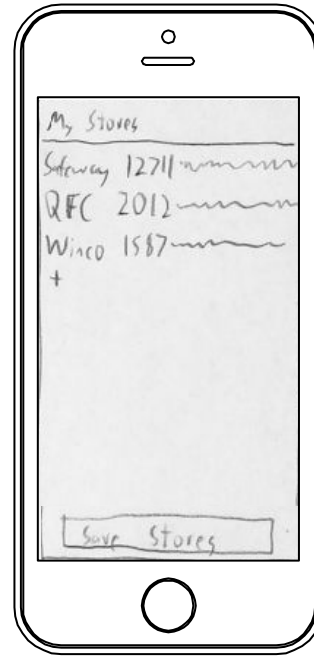 My Stores
Safeway 12711
QFC 2012
Winco 1587
+
Save Stores